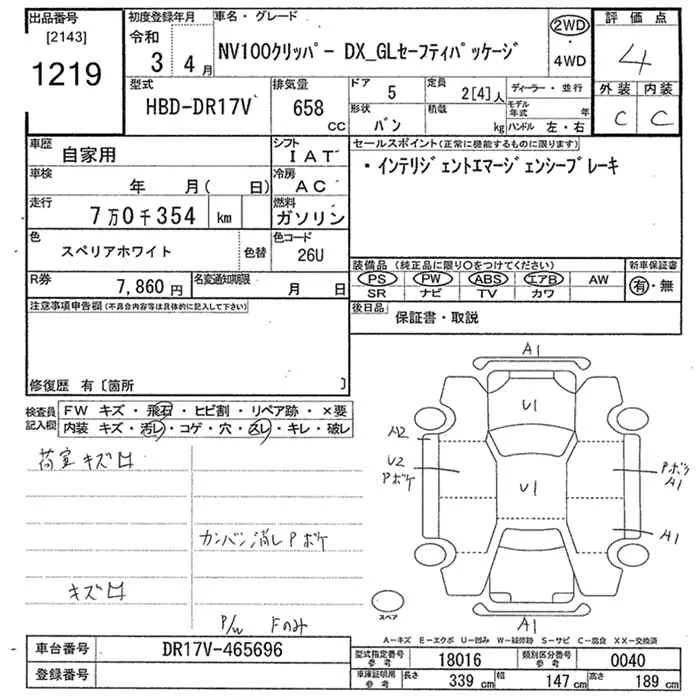 出品番号 初度登録年月 車名・グレード 2WD 評価点
[2143] 令和 NV100クリッパー DX_GLセーフティパッケージ ・ 4
1219 3 年 4 月 4WD
型式 排気量 ドア 定員 ディーラー・並行 外装 内装
HBD-DR17V 658 cc 5 2[4]人 モデル年式 年 C C
形状 積載 ハンドル 左・右
バン kg
車歴 自家用 シフト IAT セールスポイント(正常に機能するものに限ります)
車検 年 月( 日) 冷房 AC ・インテリジェントエマージェンシーブレーキ
走行 7万0千354 km 燃料 ガソリン
色 スペリアホワイト 色替 色コード 26U
装備品(純正品に限り○をつけてください) 新車保証書
R券 7,860 円 名変通知期限 月 日 PS PW ABS エアB AW 有・無
SR ナビ TV カワ
注意事項申告欄(不具合内容等は具体的に記入して下さい) 後日品 保証書・取説
修復歴 有〔箇所 〕
検査員記入欄 FW キズ・飛石・ヒビ割・リペア跡・×要
内装 キズ・汚レ・コゲ・穴・スレ・キレ・破レ
荷室 キズ凹
カンバン消し Pボケ
キズ凹
P/W Fのみ
A1
U1
A2
U2
Pボケ
U1
Pボケ
A1
A1
スペア
A1
A-キズ E-エクボ U-凹み W-補修跡 S-サビ C-腐食 XX-交換済
車台番号 DR17V-465696 型式指定番号 参考 18016 類別区分番号 参考 0040
登録番号 車庫証明用 参考 長さ 339 cm 幅 147 cm 高さ 189 cm